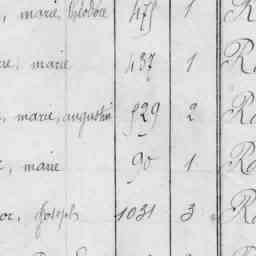 , marie, théodore 475 1 R
re, marie 437 1 R
, marie, augustin 929 2 R
, marie 90 1 R
or, joseph 1031 3 R